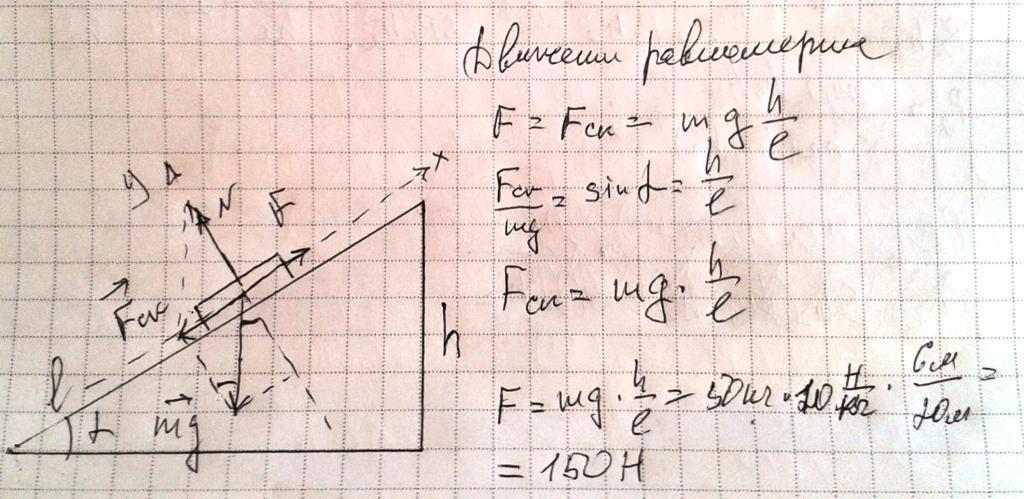 Движение равномерное
F = Fск = mg h/l
Fск/mg = sin α = h/l
Fск = mg · h/l
F = mg · h/l = 50кг · 10 Н/кг · 6м/20м =
= 150 Н
y
N
F
x
Fск
l
α
mg
h